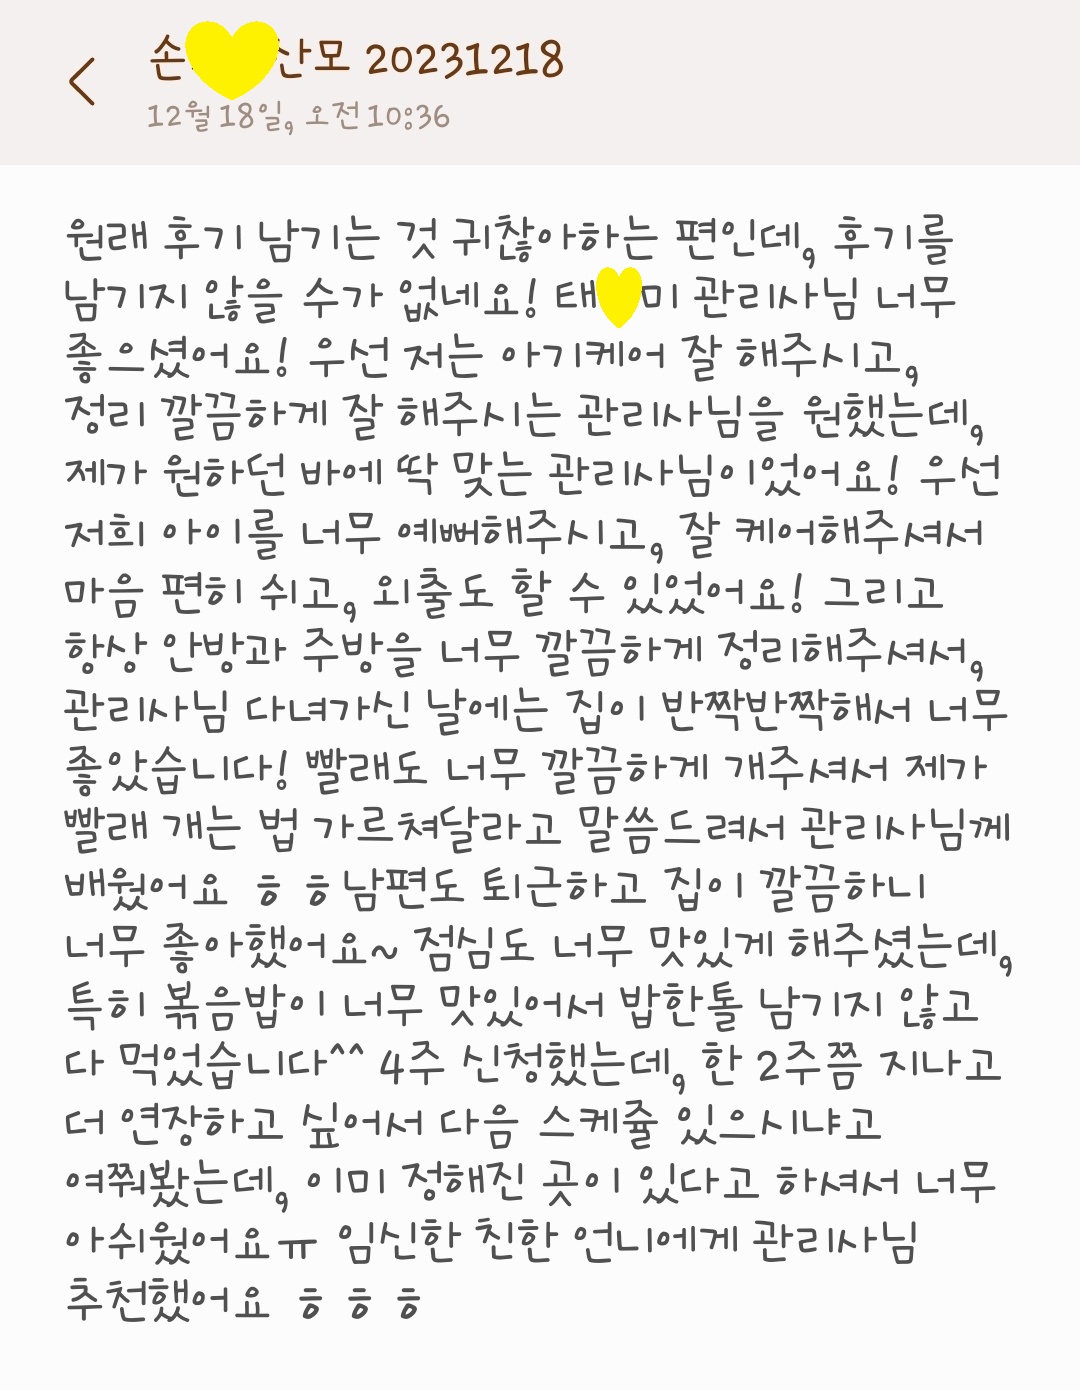 손 산모 20231218
12월 18일, 오전 10:36
원래 후기 남기는 것 귀찮아하는 편인데, 후기를
남기지 않을 수가 없네요! 태 미 관리사님 너무
좋으셨어요! 우선 저는 아기케어 잘 해주시고,
정리 깔끔하게 잘 해주시는 관리사님을 원했는데,
제가 원하던 바에 딱 맞는 관리사님이었어요! 우선
저희 아이를 너무 예뻐해주시고, 잘 케어해주셔서
마음 편히 쉬고, 외출도 할 수 있었어요! 그리고
항상 안방과 주방을 너무 깔끔하게 정리해주셔서,
관리사님 다녀가신 날에는 집이 반짝반짝해서 너무
좋았습니다! 빨래도 너무 깔끔하게 개주셔서 제가
빨래 개는 법 가르쳐달라고 말씀드려서 관리사님께
배웠어요 ㅎㅎ남편도 퇴근하고 집이 깔끔하니
너무 좋아했어요~ 점심도 너무 맛있게 해주셨는데,
특히 볶음밥이 너무 맛있어서 밥한톨 남기지 않고
다 먹었습니다^^ 4주 신청했는데, 한 2주쯤 지나고
더 연장하고 싶어서 다음 스케쥴 있으시냐고
여쭤봤는데, 이미 정해진 곳이 있다고 하셔서 너무
아쉬웠어요ㅠ 임신한 친한 언니에게 관리사님
추천했어요 ㅎㅎㅎ